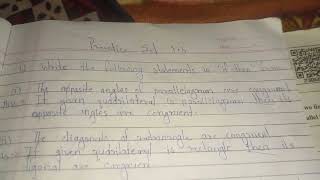 Practice Set
1) Write the following statements in 'if-then' form
i) The opposite angles of parallelogram are congruent
Ans: If given quadrilateral is parallelogram then its
opposite angles are congruent.
ii) The diagonals of rectangle are congruent
If given quadrilateral is rectangle then its
are congruent